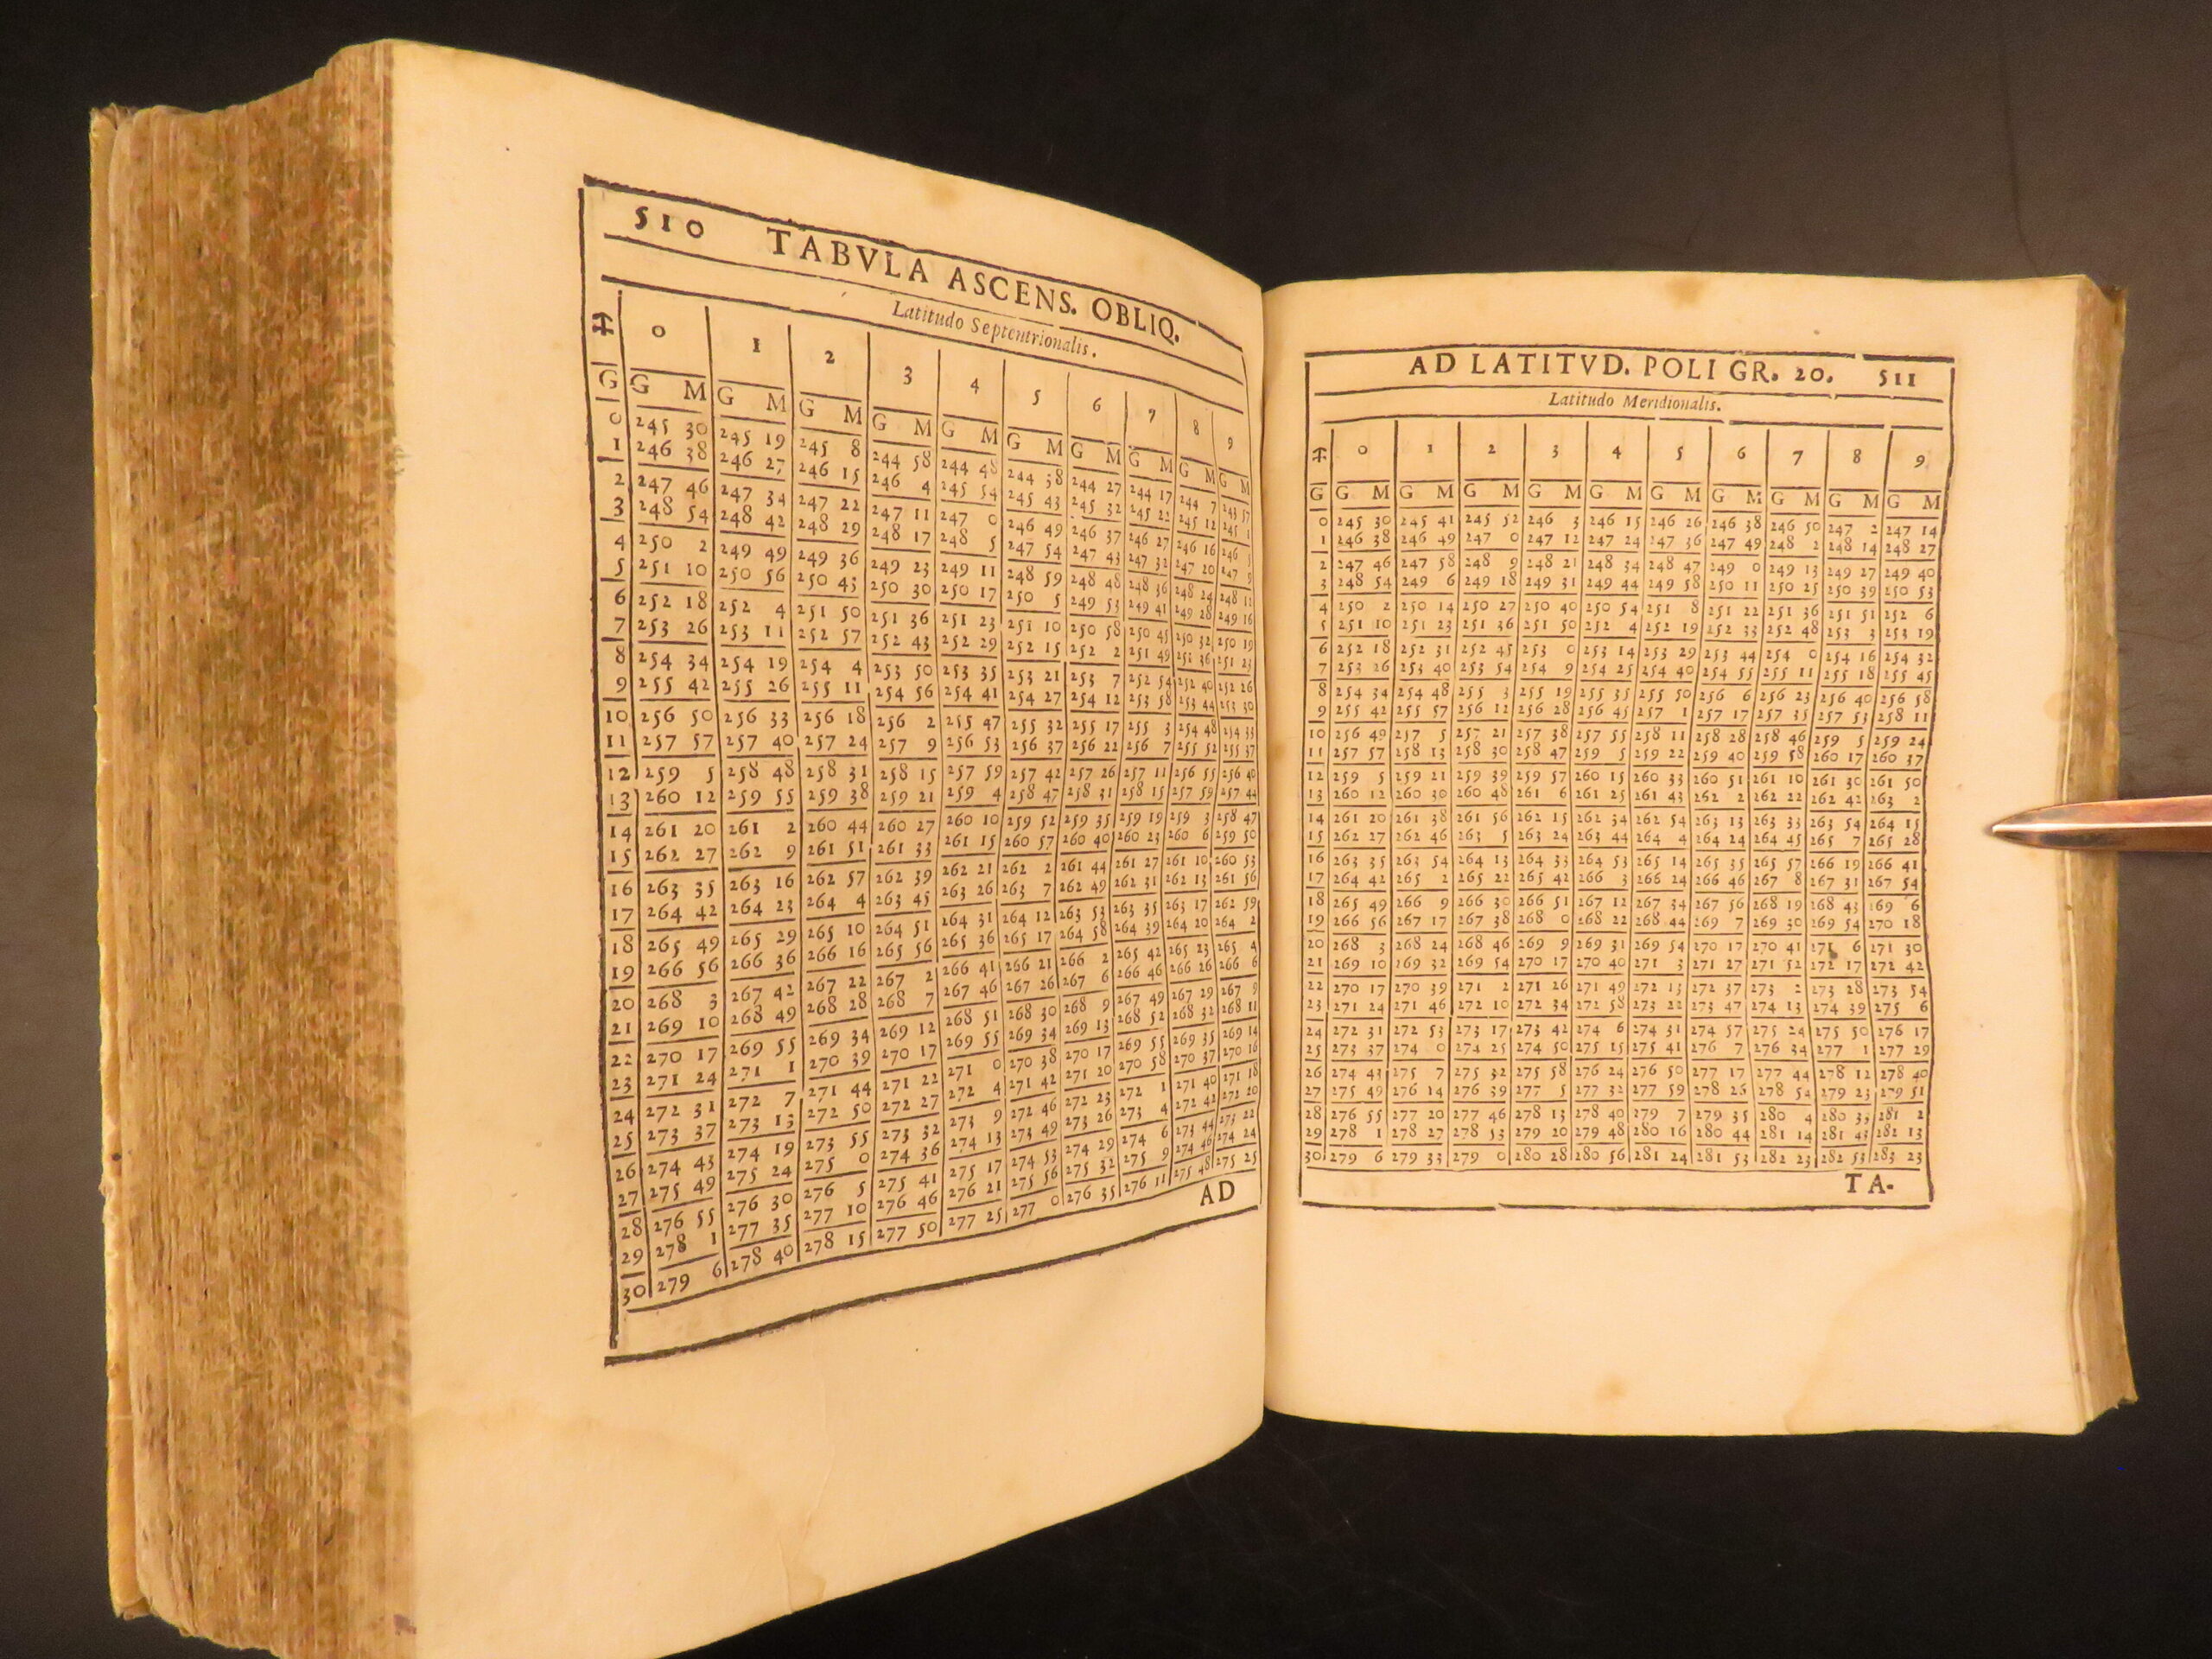 510 TABVLA ASCENS. OBLIQ.
Latitudo Septentrionalis.
♐ 0 1 2 3 4 5 6 7 8 9
G G M G M G M G M G M G M G M G M G M G M
0 245 30 245 19 245 8 244 58 244 48 244 38 244 27 244 17 244 7 243 57
1 246 38 246 27 246 15 246 4 245 54 245 43 245 32 245 22 245 12 245 1
2 247 46 247 34 247 22 247 11 247 0 246 49 246 37 246 27 246 16 246
3 248 54 248 42 248 29 248 17 248 5 247 54 247 43 247 32 247 20 247 9
4 250 2 249 49 249 36 249 23 249 11 248 59 248 48 248 36 248 24 248 11
5 251 10 250 56 250 43 250 30 250 17 250 5 249 53 249 41 249 28 249 16
6 252 18 252 4 251 50 251 36 251 23 251 10 250 58 250 45 250 32 250 19
7 253 26 253 11 252 57 252 43 252 29 252 15 252 2 251 49 251 36 251 23
8 254 34 254 19 254 4 253 50 253 35 253 21 253 7 252 54 252 40 252 26
9 255 42 255 26 255 11 254 56 254 41 254 27 254 12 253 58 253 44 253 30
10 256 50 256 33 256 18 256 2 255 47 255 32 255 17 255 3 254 48 254 33
11 257 57 257 40 257 24 257 9 256 53 256 37 256 22 256 7 255 52 255 37
12 259 5 258 48 258 31 258 15 257 59 257 42 257 26 257 11 256 55 256 40
13 260 12 259 55 259 38 259 21 259 4 258 47 258 31 258 15 257 59 257 44
14 261 20 261 2 260 44 260 27 260 10 259 52 259 35 259 19 259 3 258 47
15 262 27 262 9 261 51 261 33 261 15 260 57 260 40 260 23 260 6 259 50
16 263 35 263 16 262 57 262 39 262 21 262 2 261 44 261 27 261 10 260 53
17 264 42 264 23 264 4 263 45 263 26 263 7 262 49 262 31 262 13 261 56
18 265 49 265 29 265 10 264 51 264 31 264 12 263 53 263 35 263 17 262 59
19 266 56 266 36 266 16 265 56 265 36 265 17 264 58 264 39 264 20 264 2
20 268 3 267 42 267 22 267 2 266 41 266 21 266 2 265 42 265 23 265 4
21 269 10 268 49 268 28 268 7 267 46 267 26 267 6 266 46 266 26 266 6
22 270 17 269 55 269 34 269 12 268 51 268 30 268 9 267 49 267 29 267 9
23 271 24 271 1 270 39 270 17 269 55 269 34 269 13 268 52 268 32 268 11
24 272 31 272 7 271 44 271 22 271 0 270 38 270 17 269 55 269 35 269 14
25 273 37 273 13 272 50 272 27 272 4 271 42 271 20 270 58 270 37 270 16
26 274 43 274 19 273 55 273 32 273 9 272 46 272 23 272 1 271 40 271 18
27 275 49 275 24 275 0 274 36 274 13 273 49 273 26 273 4 272 42 272 20
28 276 55 276 30 276 5 275 41 275 17 274 53 274 29 274 6 273 44 273 22
29 278 1 277 35 277 10 276 46 276 21 275 56 275 32 275 9 274 46 274 24
30 279 6 278 40 278 15 277 50 277 25 277 0 276 35 276 11 275 48 275 25
AD
AD LATITVD. POLI GR. 20. 511
Latitudo Meridionalis.
♐ 0 1 2 3 4 5 6 7 8 9
G G M G M G M G M G M G M G M G M G M G M
0 245 30 245 41 245 52 246 3 246 15 246 26 246 38 246 50 247 2 247 14
1 246 38 246 49 247 0 247 12 247 24 247 36 247 49 248 2 248 14 248 27
2 247 46 247 58 248 9 248 21 248 34 248 47 249 0 249 13 249 27 249 40
3 248 54 249 6 249 18 249 31 249 44 249 58 250 11 250 25 250 39 250 53
4 250 2 250 14 250 27 250 40 250 54 251 8 251 22 251 36 251 51 252 6
5 251 10 251 23 251 36 251 50 252 4 252 19 252 33 252 48 253 3 253 19
6 252 18 252 31 252 45 253 0 253 14 253 29 253 44 254 0 254 16 254 32
7 253 26 253 40 253 54 254 9 254 25 254 40 254 55 255 11 255 18 255 45
8 254 34 254 48 255 3 255 19 255 35 255 50 256 6 256 23 256 40 256 58
9 255 42 255 57 256 12 256 28 256 45 257 1 257 17 257 35 257 53 258 11
10 256 49 257 5 257 21 257 38 257 55 258 11 258 28 258 46 259 5 259 24
11 257 57 258 13 258 30 258 47 259 5 259 22 259 40 259 58 260 17 260 37
12 259 5 259 21 259 39 259 57 260 15 260 33 260 51 261 10 261 30 261 50
13 260 12 260 30 260 48 261 6 261 25 261 43 262 2 262 22 262 42 263 2
14 261 20 261 38 261 56 262 15 262 34 262 54 263 13 263 33 263 54 264 15
15 262 27 262 46 263 5 263 24 263 44 264 4 264 24 264 45 265 7 265 28
16 263 35 263 54 264 13 264 33 264 53 265 14 265 35 265 57 266 19 266 41
17 264 42 265 2 265 22 265 42 266 3 266 24 266 46 267 8 267 31 267 54
18 265 49 266 9 266 30 266 51 267 12 267 34 267 56 268 19 268 43 269 6
19 266 56 267 17 267 38 268 0 268 22 268 44 269 7 269 30 269 54 270 18
20 268 3 268 24 268 46 269 9 269 31 269 54 270 17 270 41 271 6 271 30
21 269 10 269 32 269 54 270 17 270 40 271 3 271 27 271 52 272 17 272 42
22 270 17 270 39 271 2 271 26 271 49 272 13 272 37 273 2 273 28 273 54
23 271 24 271 46 272 10 272 34 272 58 273 22 273 47 274 13 274 39 275 6
24 272 31 272 53 273 17 273 42 274 6 274 31 274 57 275 24 275 50 276 17
25 273 37 274 0 274 25 274 50 275 15 275 41 276 7 276 34 277 1 277 29
26 274 43 275 7 275 32 275 58 276 24 276 50 277 17 277 44 278 12 278 40
27 275 49 276 14 276 39 277 5 277 32 277 59 278 26 278 54 279 23 279 51
28 276 55 277 20 277 46 278 13 278 40 279 7 279 35 280 4 280 33 281 2
29 278 1 278 27 278 53 279 20 279 48 280 16 280 44 281 14 281 43 282 13
30 279 6 279 33 279 0 280 28 280 56 281 24 281 53 282 23 282 53 283 23
TA-